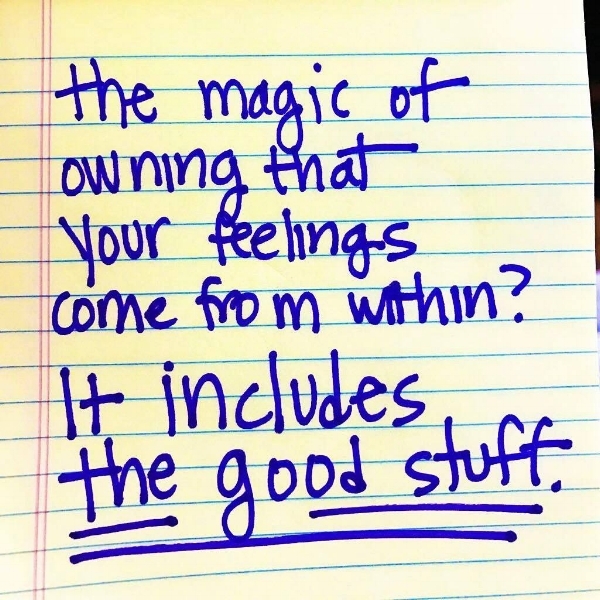 the magic of
owning that
your feelings
come from within?
It includes
the good stuff.